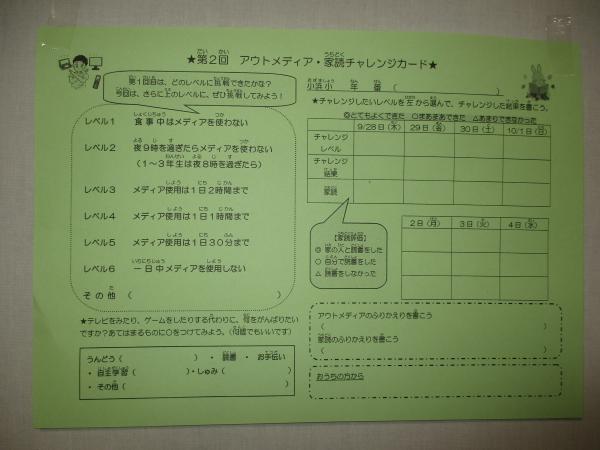 ★第2回 アウトメディア・家読チャレンジカード★
第1回目は、どのレベルに挑戦できたかな?
今回は、さらに上のレベルに、ぜひ挑戦してみよう!
レベル1 食事中はメディアを使わない
レベル2 夜9時を過ぎたらメディアを使わない
(1~3年生は夜8時を過ぎたら)
レベル3 メディア使用は1日2時間まで
レベル4 メディア使用は1日1時間まで
レベル5 メディア使用は1日30分まで
レベル6 一日中メディアを使用しない
その他 ( )
★テレビをみたり、ゲームをしたりする代わりに、何をがんばりたい
ですか?あてはまるものに○をつけてみよう。(何個でもいいです)
うんどう( ) ・ 読書 ・ お手伝い
・ 自主学習( )・しゅみ( )
・ その他( )
小浜小 年 番 ( )
★チャレンジしたいレベルを左から選んで、チャレンジした結果を書こう。
◎とてもよくできた ○まあまあできた △あまりできなかった
9/28日(木) 29日(金) 30日(土) 10/1日(日)
チャレンジレベル
チャレンジ結果
家読
【家読評価】
◎ 家の人と読書をした
○ 自分で読書をした
△ 読書をしなかった
2日(月) 3日(火) 4日(水)
アウトメディアのふりかえりを書こう
( )
家読のふりかえりを書こう
( )
おうちの方から